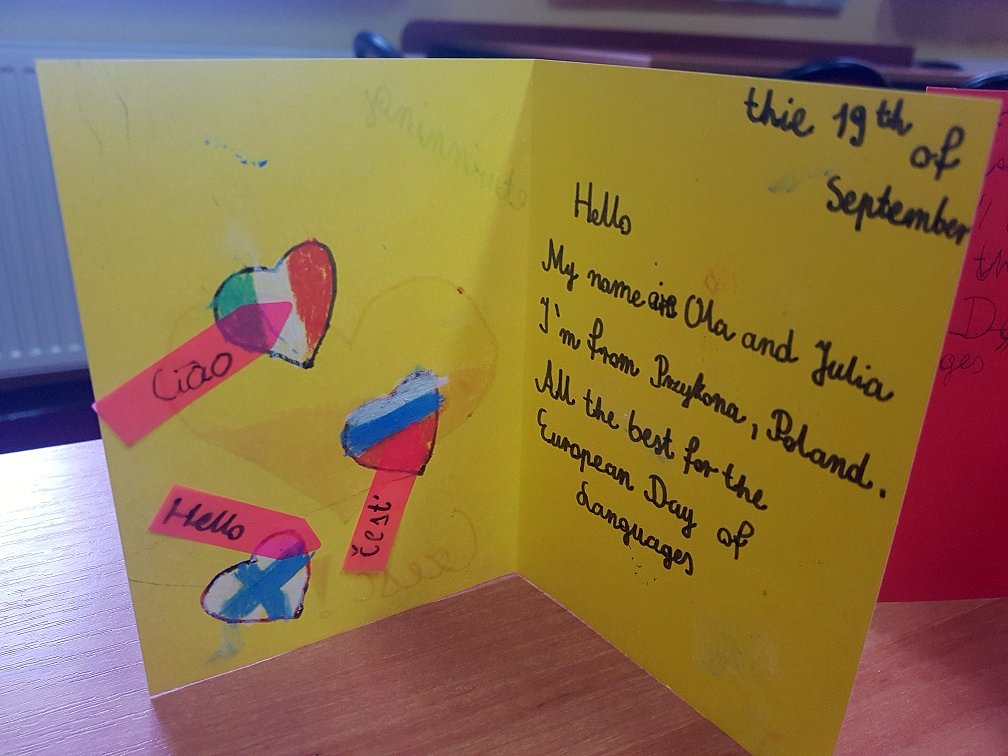 Ciao
Hello
čest
thie 19th of
September
Hello
My name is Ola and Julia
I'm from Przykona, Poland.
All the best for the
European Day of
Languages
etwinning